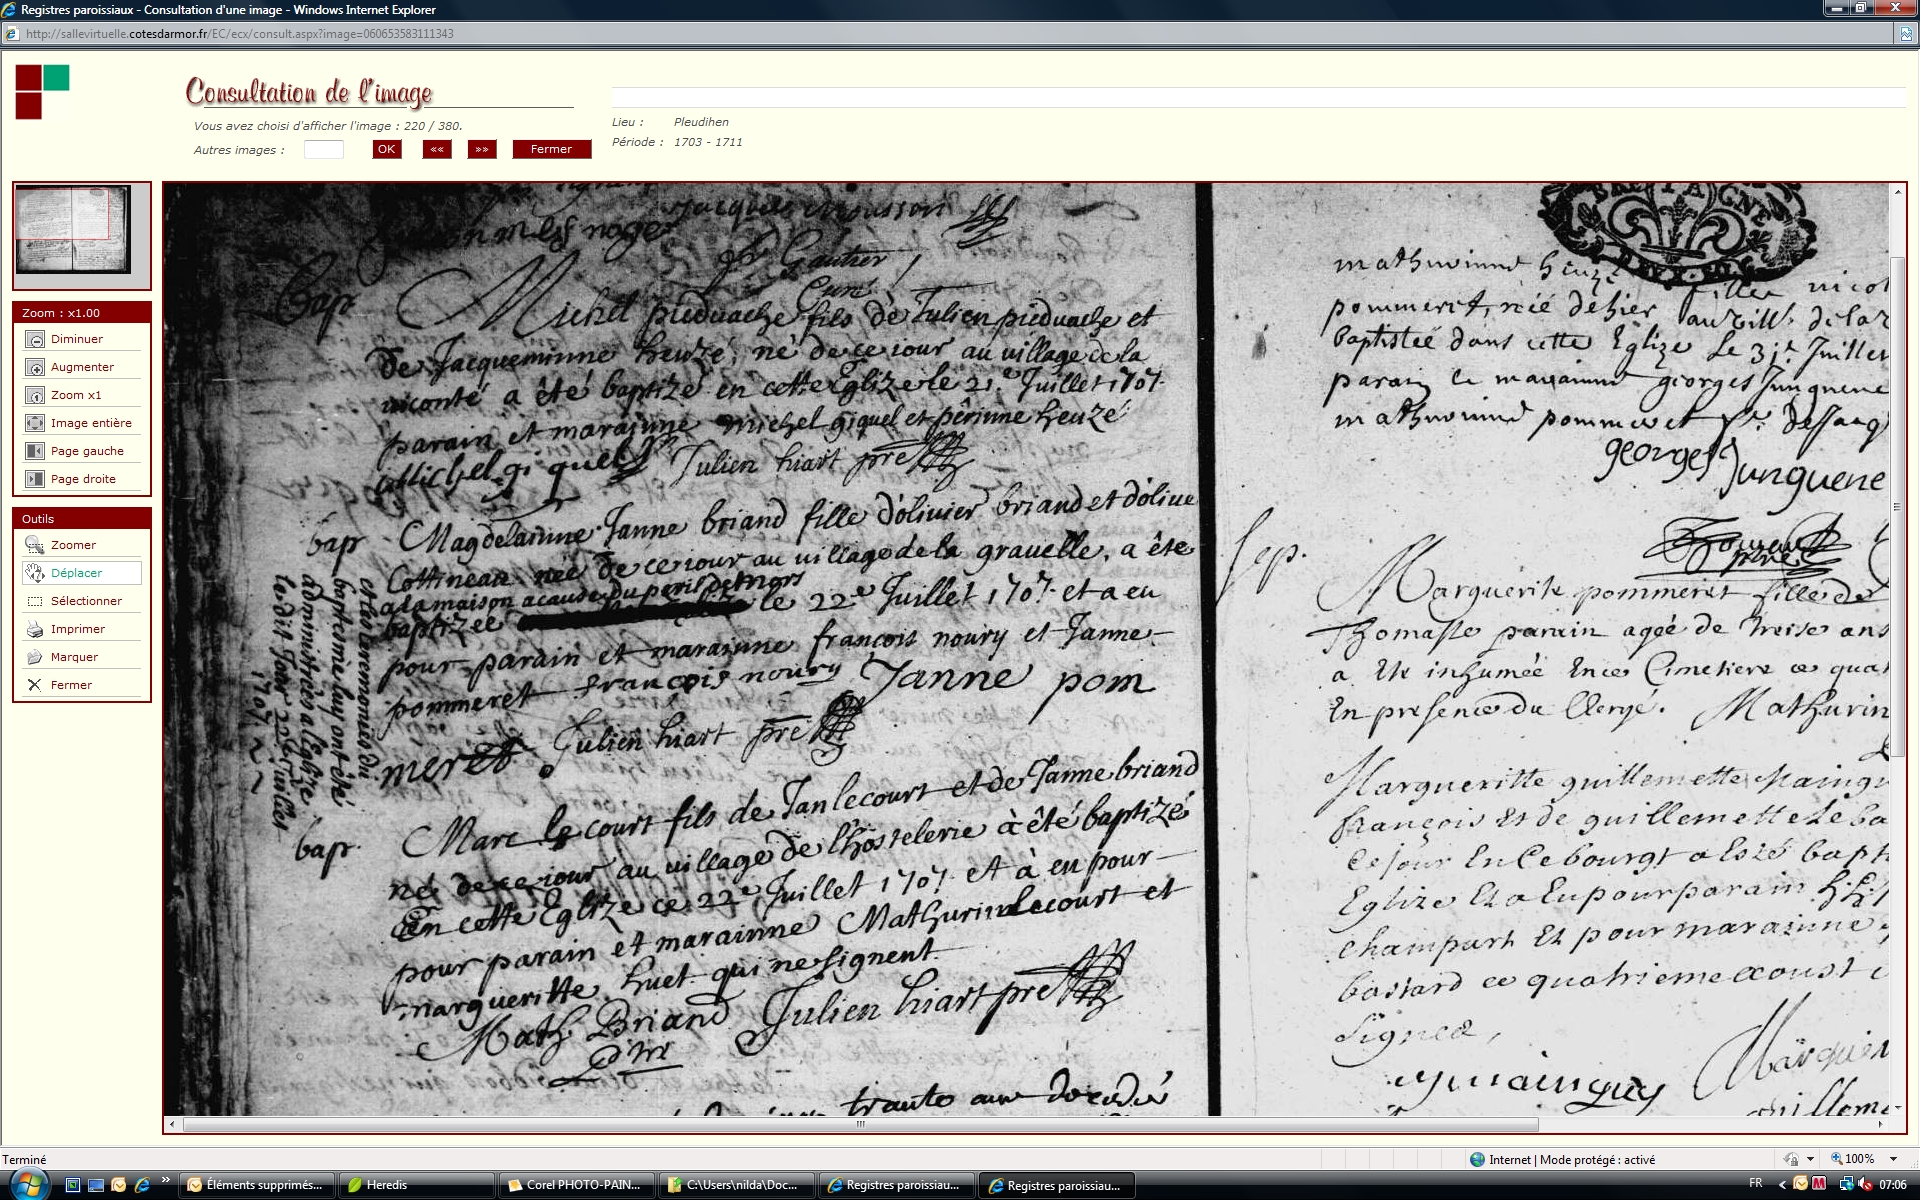 Registres paroissiaux - Consultation d'une image - Windows Internet Explorer
http://sallevirtuelle.cotesdarmor.fr/EC/ecx/consult.aspx?image=060653583111343
Consultation de l'image
Vous avez choisi d'afficher l'image : 220 / 380.
Autres images :
OK
««
»»
Fermer
Lieu : Pleudihen
Période : 1703 - 1711
Zoom : x1.00
Diminuer
Augmenter
Zoom x1
Image entière
Page gauche
Page droite
Outils
Zoomer
Déplacer
Sélectionner
Imprimer
Marquer
Fermer
Jacques
Gautier
Curé
bap
Michel pieduache fils de Julien pieduache et
de Jacqueminne heuzé, né de ce iour au village de la
uiconté a été baptizé en cette Eglize le 21e Juillet 1707.
parain et marainne michel giquel et perinne heuzé
Michel giquel Julien hiart pre
bap. Magdelainne Janne briand fille d'oliuier briand et d'oliue
Cottineau, née de ce iour au village de la grauelle, a été
a la maison a cause du peril de mort
baptizée le 22e Juillet 1707. et a eu
pour parain et marainne françois noury et Janne
pommeret françois noury Janne pom
meret. Julien hiart pre
et les ceremonies du
baptesme luy ont eté
administrées a leglize
le dit Jour 22e Juillet
1707
bap. Marc le court fils de Jan lecourt et de Janne briand
né de ce iour au uillage de l'hostelerie à été baptizé
En cette Eglize ce 22e Juillet 1707. et à eu pour
pour parain et marainne Mathurin lecourt et
margueritte huet qui ne signent.
Math Briand Julien hiart pre
BRETAGNE
mathurinne heuzé
pommeret, née dehier
baptistée dans cette Eglize Le 31e Juillet
parain et maraine georges Junguene
mathurinne pommeret
georges Junguene
Sep. Marguerite pommeret fille de
Thomasse parain agée de treise ans
a Eté inhumée En ce Cimetiere ce quat
En presence du Clergé. Mathurin
Margueritte guillemette Maingu
françois Et de guillemette Le ba
Ce jour En Ce bourgt a Esté bapt
Eglize Et a Eu pour parain
champart Et pour marainne
bastard ce quatrieme aoust
Signez,
Marguer
guilleme
Terminé
Internet | Mode protégé : activé
100%
Éléments supprimés...
Heredis
Corel PHOTO-PAIN...
C:\Users\nilda\Doc...
Registres paroissiau...
Registres paroissiau...
FR
07:06